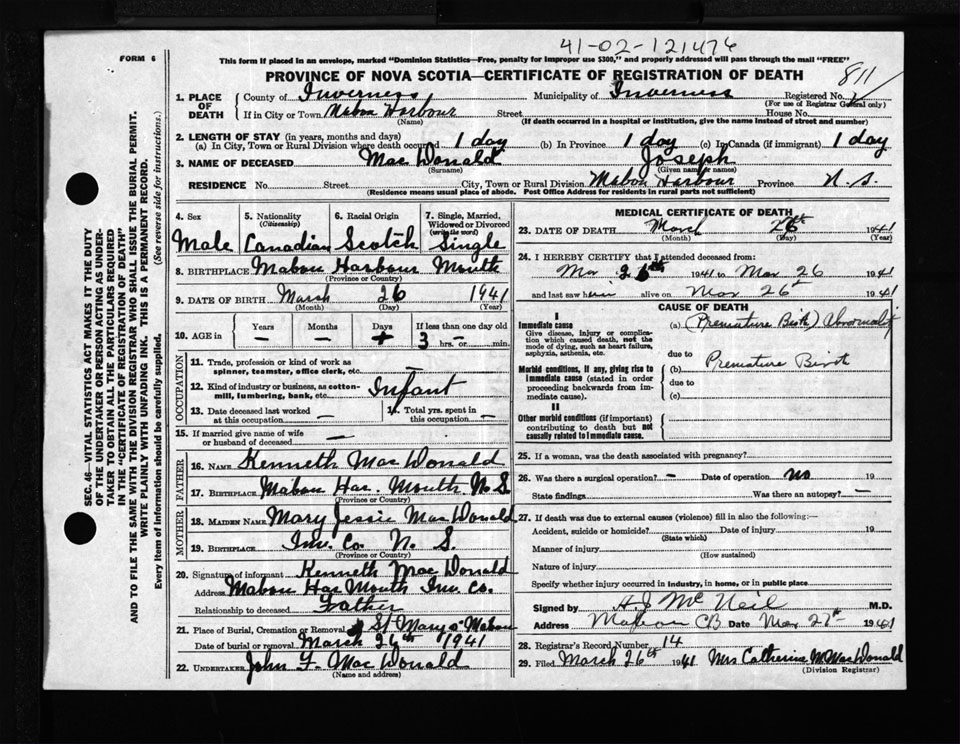 41-02-121476
FORM 6
This form if placed in an envelope, marked "Dominion Statistics—Free, penalty for improper use $300," and properly addressed will pass through the mail "FREE"
PROVINCE OF NOVA SCOTIA—CERTIFICATE OF REGISTRATION OF DEATH
811
1. PLACE OF DEATH
County of Inverness Municipality of Inverness Registered No.
(For use of Registrar General only)
If in City or Town Mabou Harbour Street House No.
(Name) (If death occurred in a hospital or institution, give the name instead of street and number)
2. LENGTH OF STAY (in years, months and days)
(a) In City, Town or Rural Division where death occurred 1 day (b) In Province 1 day (c) In Canada (if immigrant) 1 day
3. NAME OF DECEASED MacDonald Joseph
(Surname) (Given name or names)
RESIDENCE No. Street City, Town or Rural Division Mabou Harbour Province N.S.
(Residence means usual place of abode. Post Office Address for residents in rural parts not sufficient)
4. Sex 5. Nationality (Citizenship) 6. Racial Origin 7. Single, Married, Widowed or Divorced (write the word)
Male Canadian Scotch Single
8. BIRTHPLACE Mabou Harbour Mouth
(Province or Country)
9. DATE OF BIRTH March 26 1941
(Month) (Day) (Year)
10. AGE in Years Months Days If less than one day old
— — + 3 hrs. or — min.
OCCUPATION
11. Trade, profession or kind of work as spinner, teamster, office clerk, etc. —
12. Kind of industry or business, as cotton-mill, lumbering, bank, etc. Infant
13. Date deceased last worked at this occupation — 14. Total yrs. spent in this occupation —
15. If married give name of wife or husband of deceased —
FATHER
16. NAME Kenneth MacDonald
17. BIRTHPLACE Mabou Har. Mouth N.S.
(Province or Country)
MOTHER
18. MAIDEN NAME Mary Jessie MacDonald
19. BIRTHPLACE Inv. Co. N. S.
(Province or Country)
20. Signature of informant Kenneth MacDonald
Address Mabou Har Mouth Inv. Co.
Relationship to deceased Father
21. Place of Burial, Cremation or Removal St Marys Mabou
Date of burial or removal March 26th 1941
22. UNDERTAKER John F. MacDonald
(Name and address)
MEDICAL CERTIFICATE OF DEATH
23. DATE OF DEATH March 26th 1941
(Month) (Day) (Year)
24. I HEREBY CERTIFY that I attended deceased from:
Mar 26th 1941 to Mar 26 1941
and last saw h alive on Mar 26th 1941
CAUSE OF DEATH
I
Immediate cause
Give disease, injury or complication which caused death, not the mode of dying, such as heart failure, asphyxia, asthenia, etc.
(a) (Premature Birth) Abnormality
due to
Morbid conditions, if any, giving rise to immediate cause (stated in order proceeding backwards from immediate cause).
(b) Premature Birth
due to
(c)
II
Other morbid conditions (if important) contributing to death but not causally related to immediate cause.
25. If a woman, was the death associated with pregnancy?
26. Was there a surgical operation? — Date of operation no 19
State findings Was there an autopsy? —
27. If death was due to external causes (violence) fill in also the following:—
Accident, suicide or homicide? Date of injury 19
(State which)
Manner of injury
(How sustained)
Nature of injury
Specify whether injury occurred in industry, in home, or in public place
Signed by H J McNeil M.D.
Address Mabou CB Date Mar 27th 1941
28. Registrar's Record Number 14
29. Filed March 26th 1941 Mrs Catherine M MacDonald
(Division Registrar)
SEC. 46—VITAL STATISTICS ACT MAKES IT THE DUTY
OF THE UNDERTAKER OR PERSON ACTING AS UNDER-
TAKER TO OBTAIN ALL THE PARTICULARS REQUIRED
IN THE "CERTIFICATE OF REGISTRATION OF DEATH"
AND TO FILE THE SAME WITH THE DIVISION REGISTRAR WHO SHALL ISSUE THE BURIAL PERMIT.
WRITE PLAINLY WITH UNFADING INK. THIS IS A PERMANENT RECORD.
Every item of information should be carefully supplied. (See reverse side for instructions.)